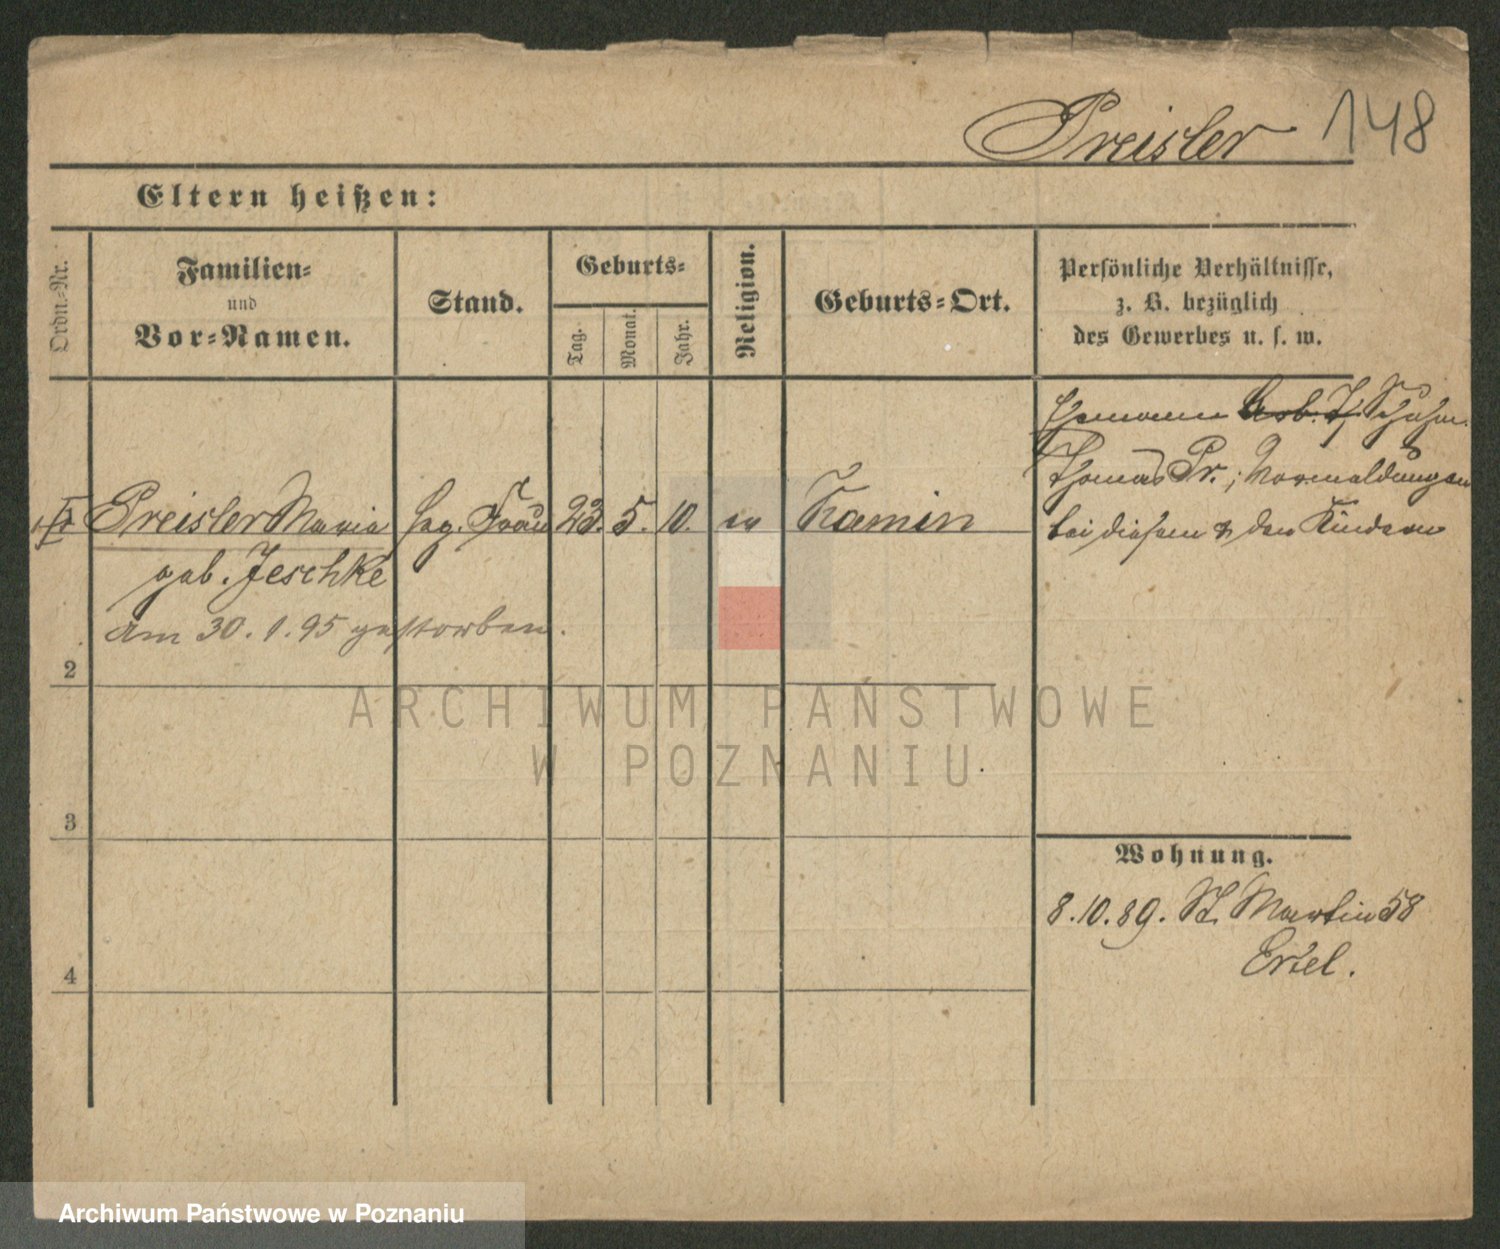 Preisler 148
Eltern heißen:
Ordn.-Nr.
Familien-
und
Vor-Namen.
Stand.
Geburts-
Tag.
Monat.
Jahr.
Religion.
Geburts-Ort.
Persönliche Verhältnisse,
z. B. bezüglich
des Gewerbes u. s. w.
Ehemann Arb.
Thomas Pr.; Vormeldungen
bei diesem & den Kindern
Preisler Maria Frau 23. 5. 10. ev Kamin
geb. Jeschke
am 30.1.95 gestorben.
2
3
4
Wohnung.
8.10.89. St. Martin 58
Ertel.
ARCHIWUM PAŃSTWOWE
W POZNANIU
Archiwum Państwowe w Poznaniu